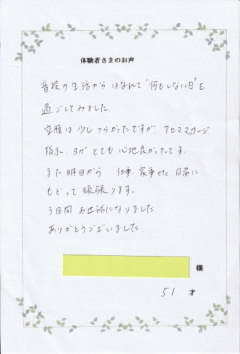 体験者さまのお声
普段の生活からはなれて"何もしない日"を
過ごしてみました。
空腹は少しつらかったですが、アロママッサージ
指圧、ヨガ とても心地良かったです。
また明日から 仕事、家事せた 日常に
もどって頑張ります。
3日間お世話になりました
ありがとうございました。
様
51才